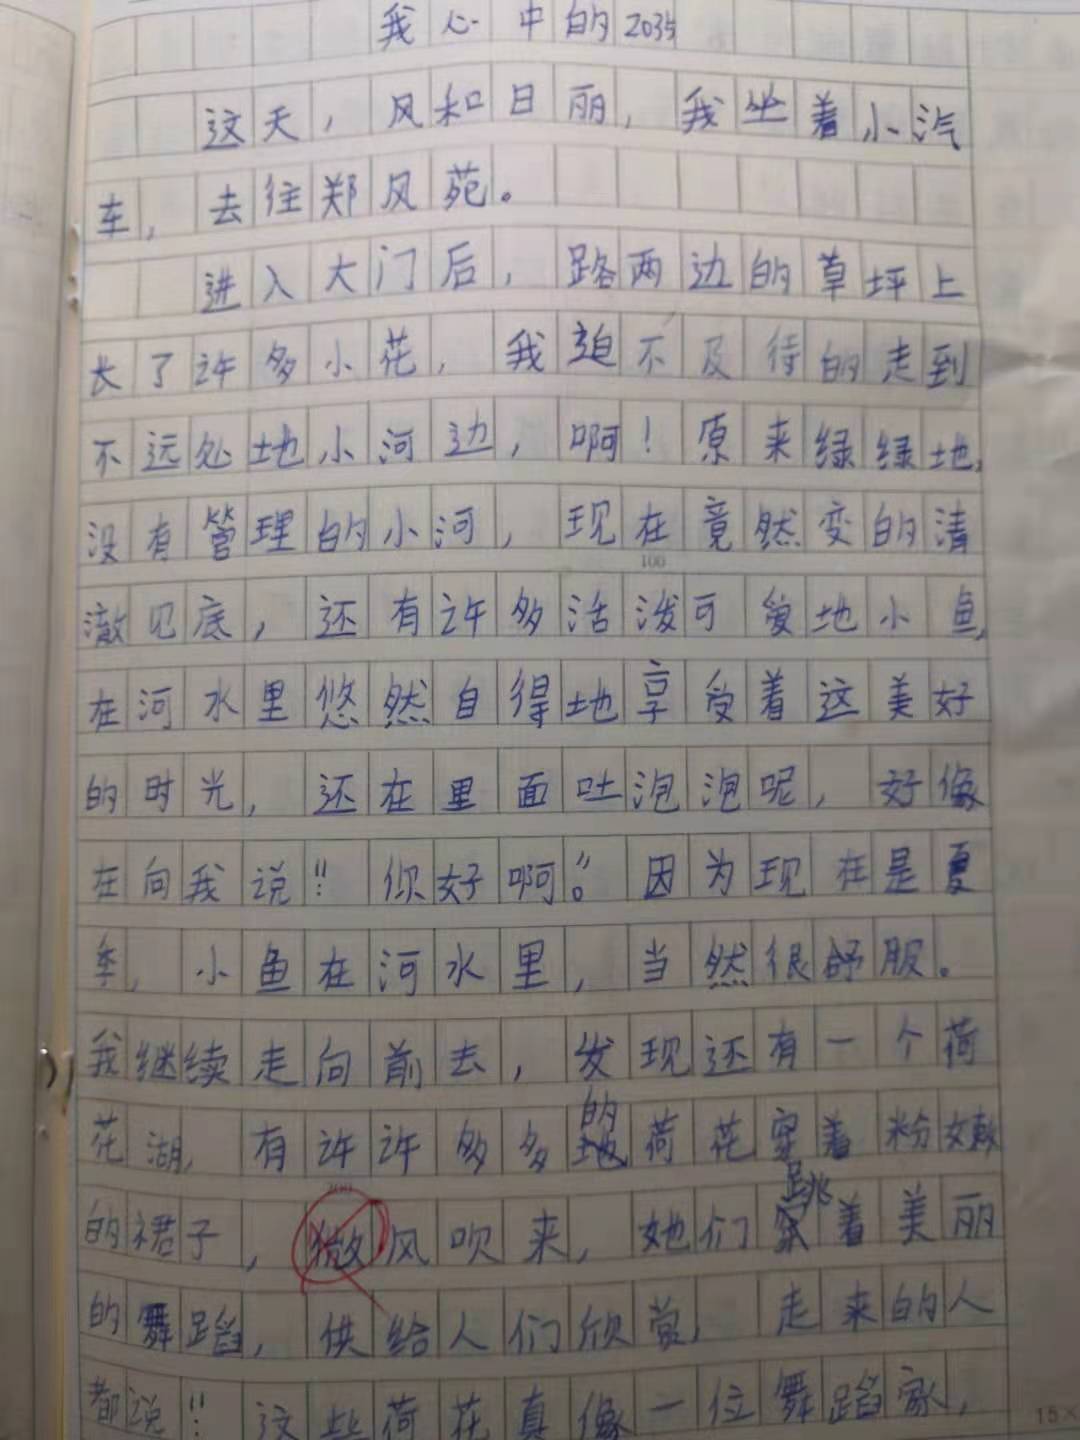 我心中的2035
这天，风和日丽，我坐着小汽
车，去往郑风苑。
进入大门后，路两边的草坪上
长了许多小花，我迫不及待的走到
不远处地小河边，啊！原来绿绿地，
没有管理的小河，现在竟然变的清
100
澈见底，还有许多活泼可爱地小鱼，
在河水里悠然自得地享受着这美好
的时光，还在里面吐泡泡呢，好像
在向我说：“你好啊”。因为现在是夏
季，小鱼在河水里，当然很舒服。
我继续走向前去，发现还有一个荷
花湖，有许许多多的荷花穿着粉嫩
的裙子，微风吹来，她们跳着美丽
的舞蹈，供给人们欣赏，走来的人
都说：“这些荷花真像一位舞蹈家，
15×